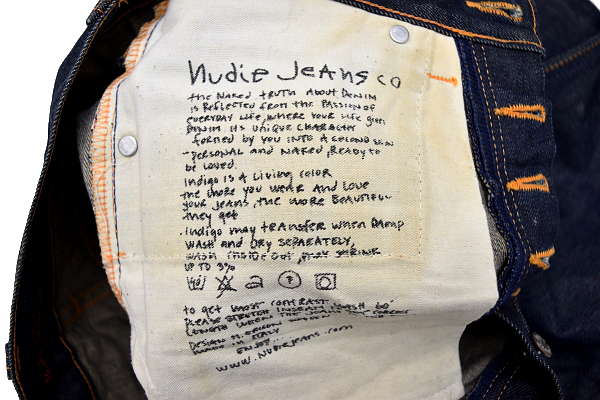 Nudie Jeans co
the Naked truth About Denim
is Reflected from the Passion of
everyday life, where your life gives
Denim its unique character
formed by you into a second skin
- personal and naked, ready to
be loved.
Indigo is A Living color
the more you wear and love
your jeans, the more beautiful
they get
Indigo may transfer when Damp
Wash and Dry separately,
wash inside out, may shrink
up to 3%
to get most contrast
please stretch inseam wash 60°
length when
Design M. Erixon
made in Italy
Enjoy...
www.Nudiejeans.com